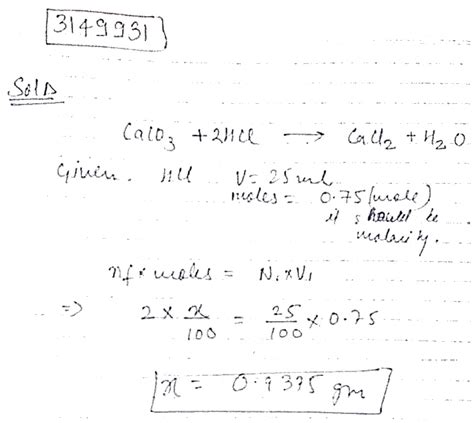 3149931
Soln
CaCO3 + 2HCl → CaCl2 + H2O
Given. HCl V = 25 ml
moles = 0.75 (mole)
it should be
molarity.
nf × moles = N1 × V1
⇒ 2 × x/100 = 25/100 × 0.75
x = 0.9375 gm